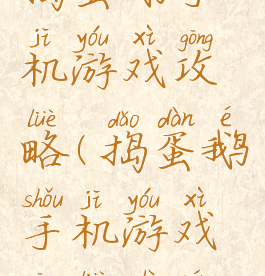 jī yóu xì gōng
机游戏攻
lüè dǎo dàn é
略(捣蛋鹅
shǒu jī yóu xì
手机游戏